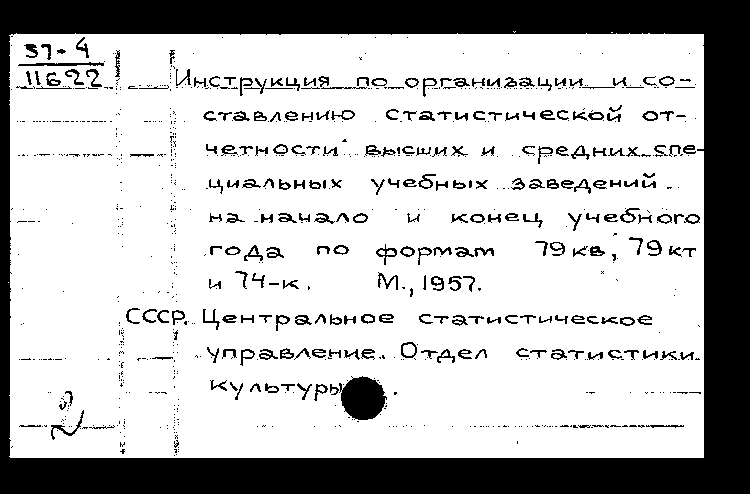 57-4
11622
Инструкция по организации и со-
ставлению статистической от-
четности высших и средних спе-
циальных учебных заведений
на начало и конец учебного
года по формам 79кв, 79кт
и 74-к. М., 1957.
СССР. Центральное статистическое
управление. Отдел статистики
культуры.
2